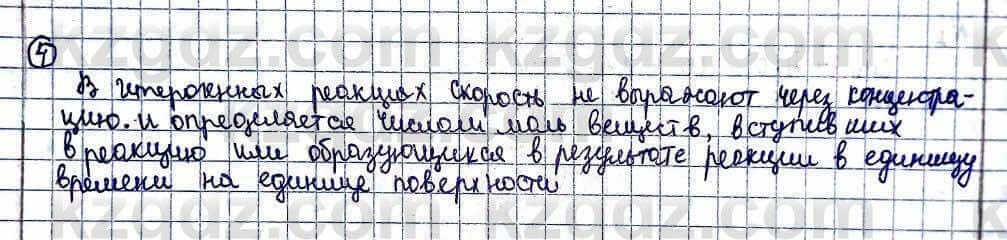 4
В гетерогенных реакциях скорость не выражают через концентра-
цию. и определяется числом моль веществ, вступивших
в реакцию или образующихся в результате реакции в единицу
времени на единице поверхности
kzgdz.com